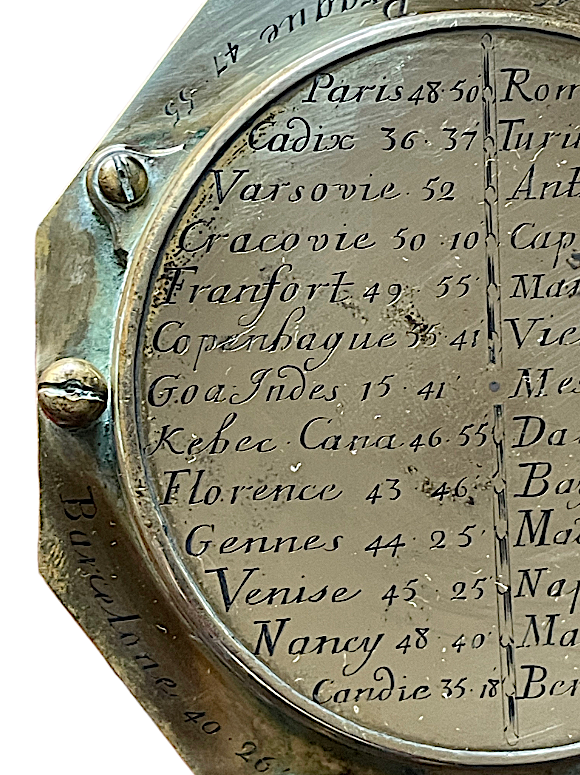 Prague 47
55
Paris 48·50 Rom
Cadix 36·37 Turi
Varsovie 52 Ant
Cracovie 50 10 Cap
Franfort 49 55 Ma
Copenhague 55 41 Vie
Goa Indes 15·41 Mes
Kebec Cana 46·55 Da
Florence 43 46 Bay
Gennes 44 25 Ma
Venise 45 25 Nap
Nancy 48 40 Ma
Candie 35·18 Ber
Barcelone 40·26